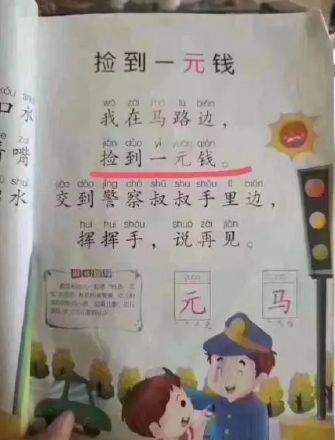 捡到一元钱
wǒ zài mǎ lù biān
我在马路边，
jiǎn dào yì yuán qián
捡到一元钱。
jiāo dào jǐng chá shū shu shǒu lǐ biān
交到警察叔叔手里边，
huī huī shǒu shuō zài jiàn
挥挥手，说再见。
元 马
kǒu shuǐ
口水
zuǐ
嘴
shuǐ
水